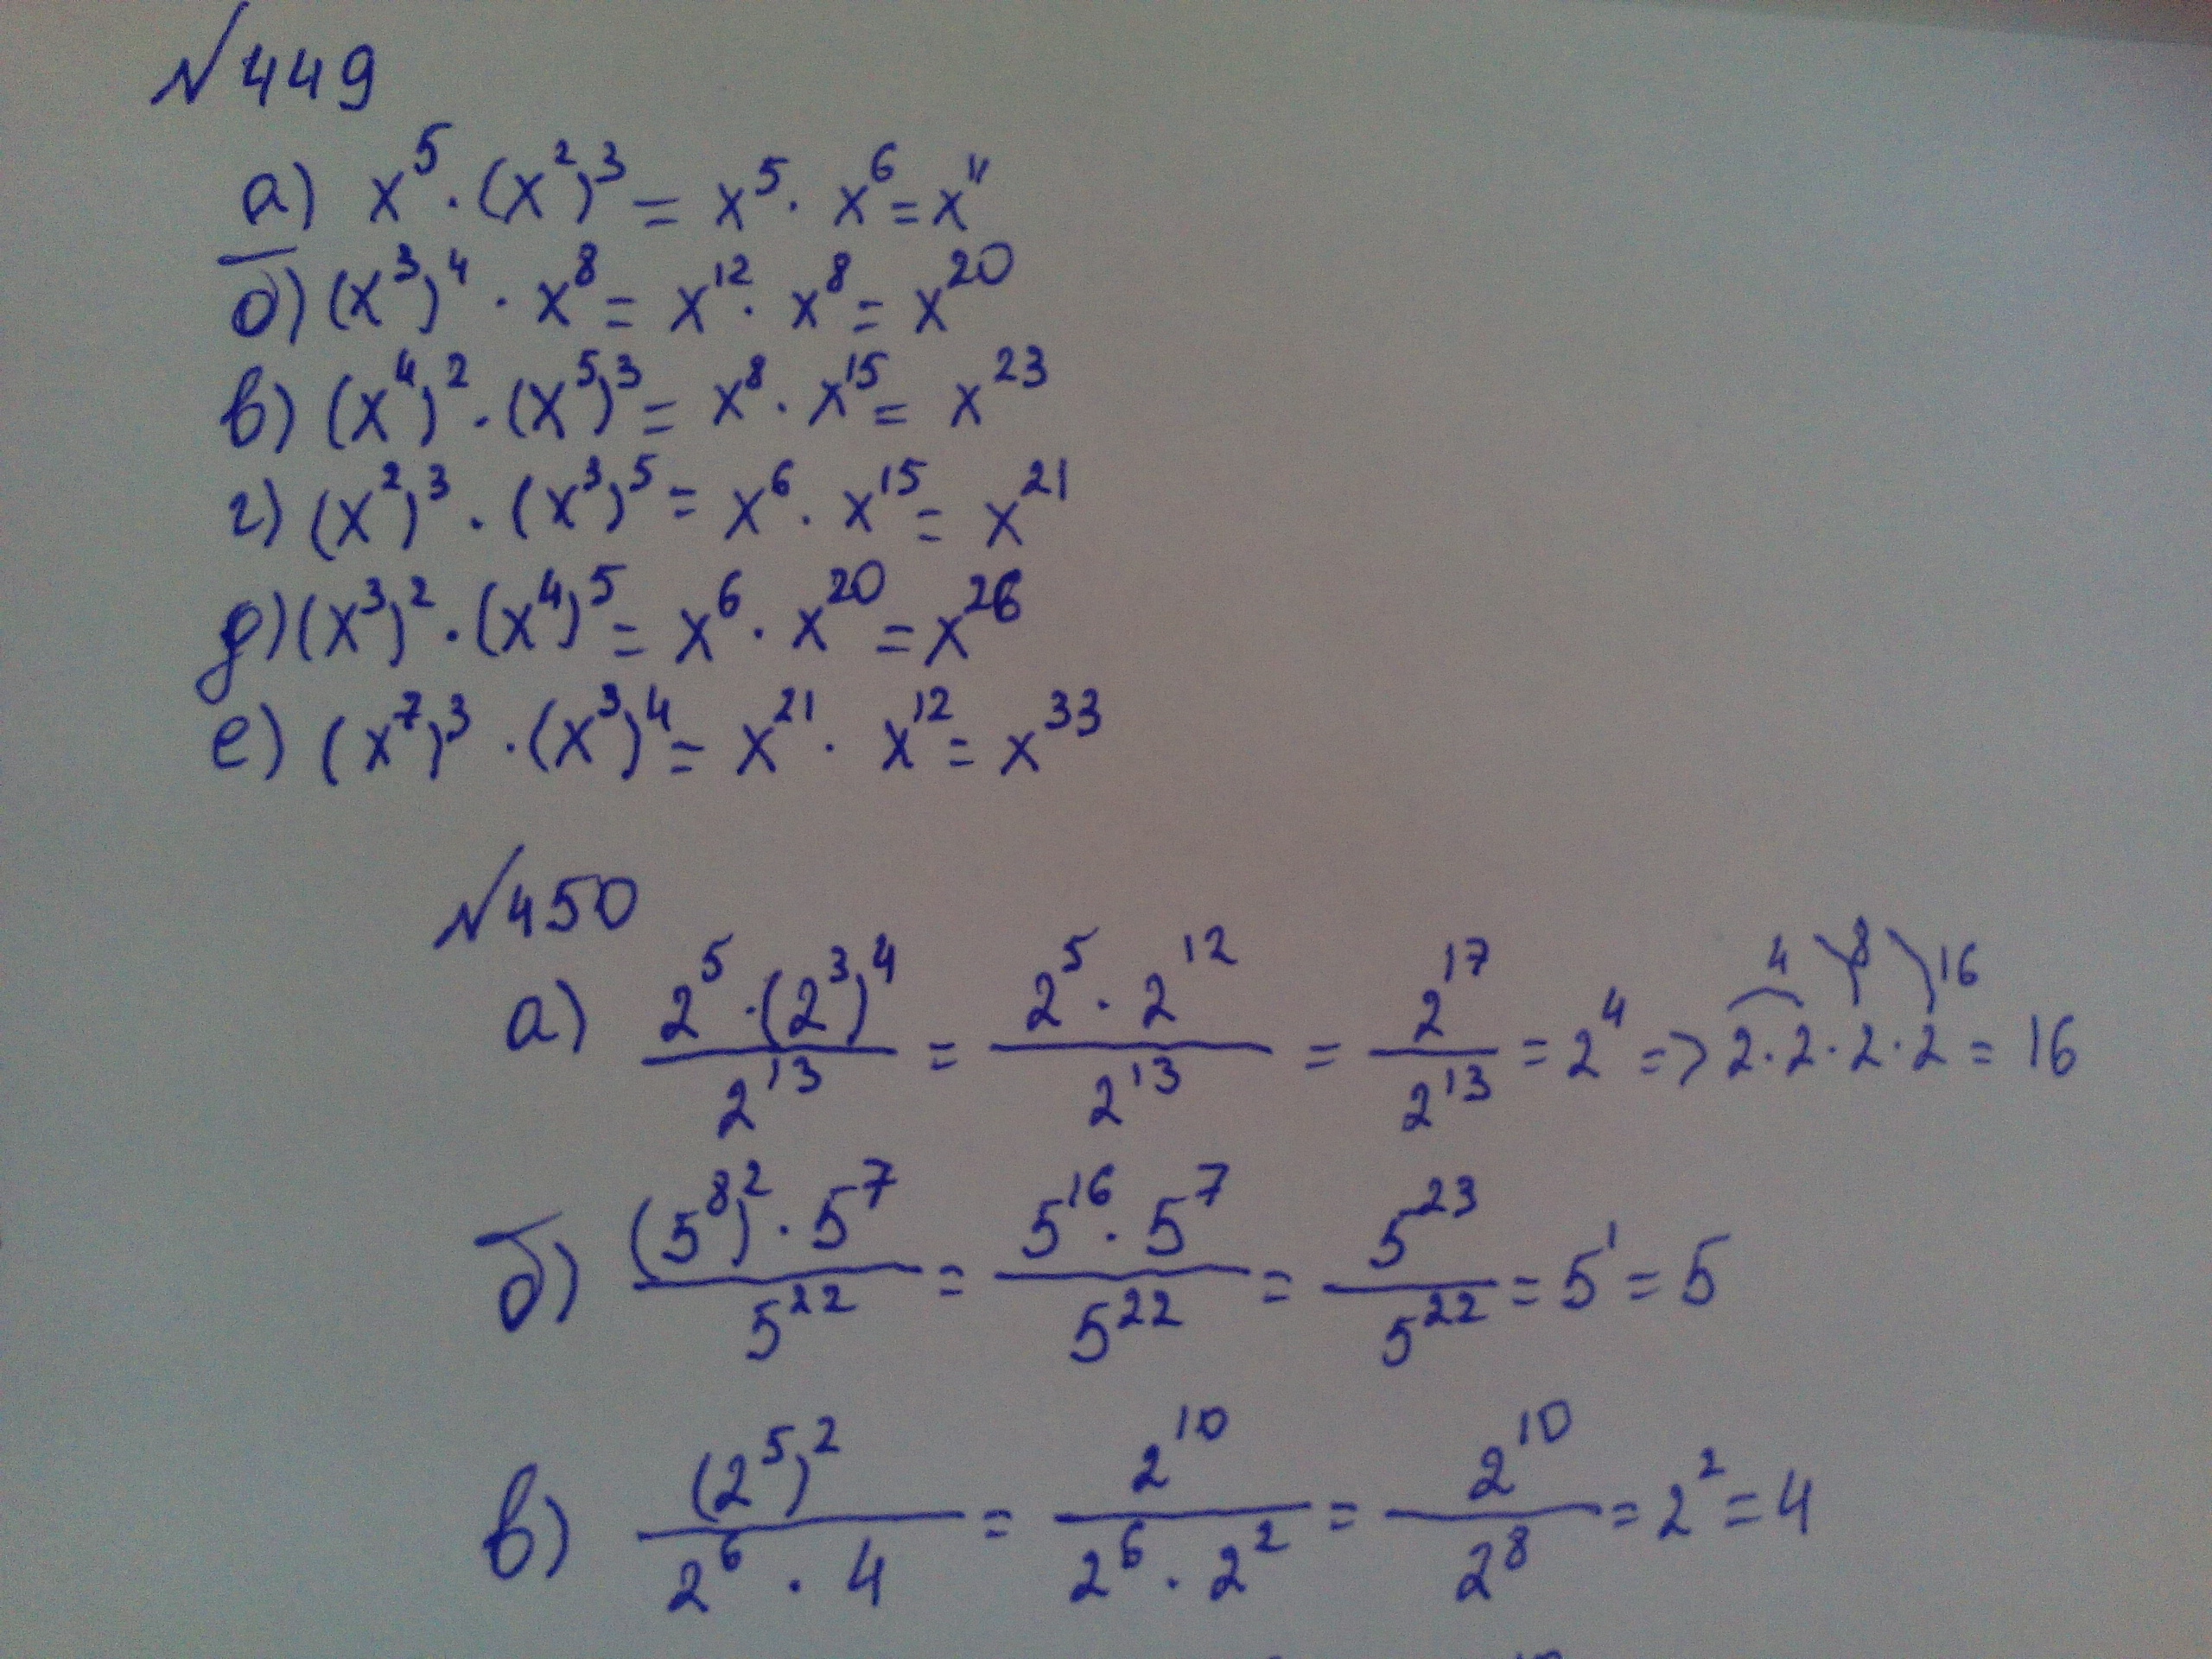 №449
а) x⁵ · (x²)³ = x⁵ · x⁶ = x¹¹
б) (x³)⁴ · x⁸ = x¹² · x⁸ = x²⁰
в) (x⁴)² · (x⁵)³ = x⁸ · x¹⁵ = x²³
г) (x²)³ · (x³)⁵ = x⁶ · x¹⁵ = x²¹
д) (x³)² · (x⁴)⁵ = x⁶ · x²⁰ = x²⁶
е) (x⁷)³ · (x³)⁴ = x²¹ · x¹² = x³³
№450
4 8 16
а) (2⁵ · (2³)⁴)/2¹³ = (2⁵ · 2¹²)/2¹³ = 2¹⁷/2¹³ = 2⁴ => 2·2·2·2 = 16
б) ((5⁸)² · 5⁷)/5²² = (5¹⁶ · 5⁷)/5²² = 5²³/5²² = 5¹ = 5
в) (2⁵)²/(2⁶ · 4) = 2¹⁰/(2⁶ · 2²) = 2¹⁰/2⁸ = 2² = 4